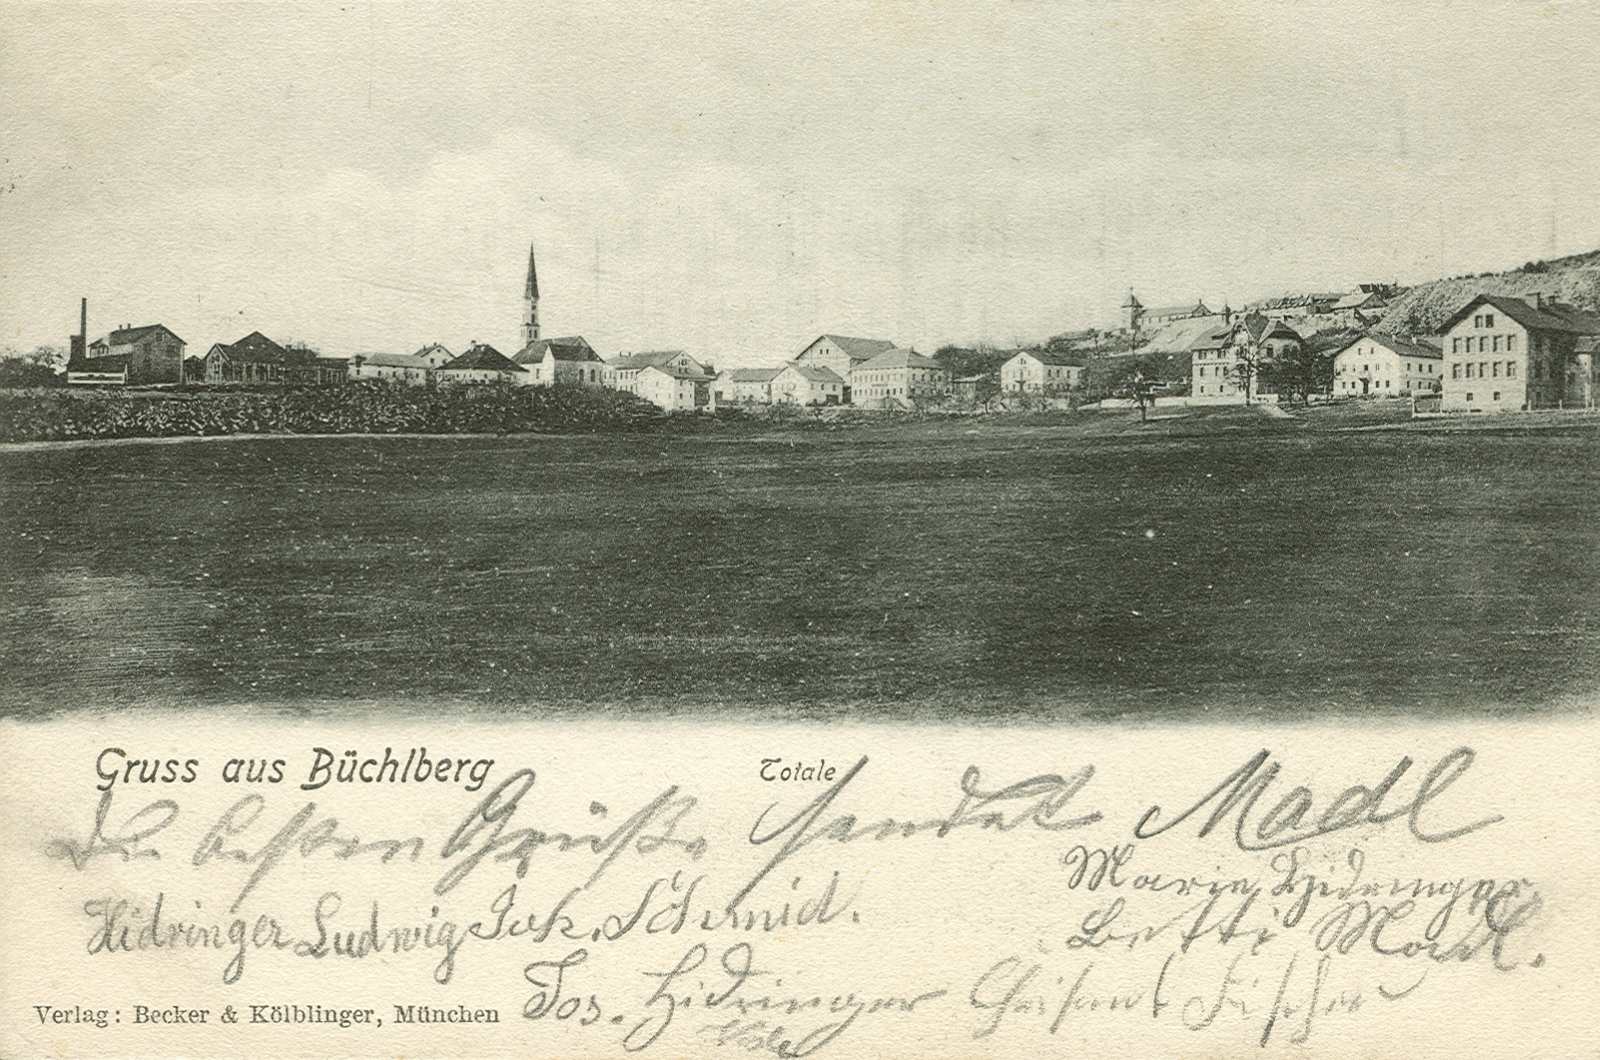 Gruss aus Büchlberg
Totale
Die besten Grüße sendet Madl
Marie Hidringer
Hidringer Ludwig Joh. Schmid.
Betti Madl.
Jos. Hidringer Fischer
Verlag: Becker & Kölblinger, München